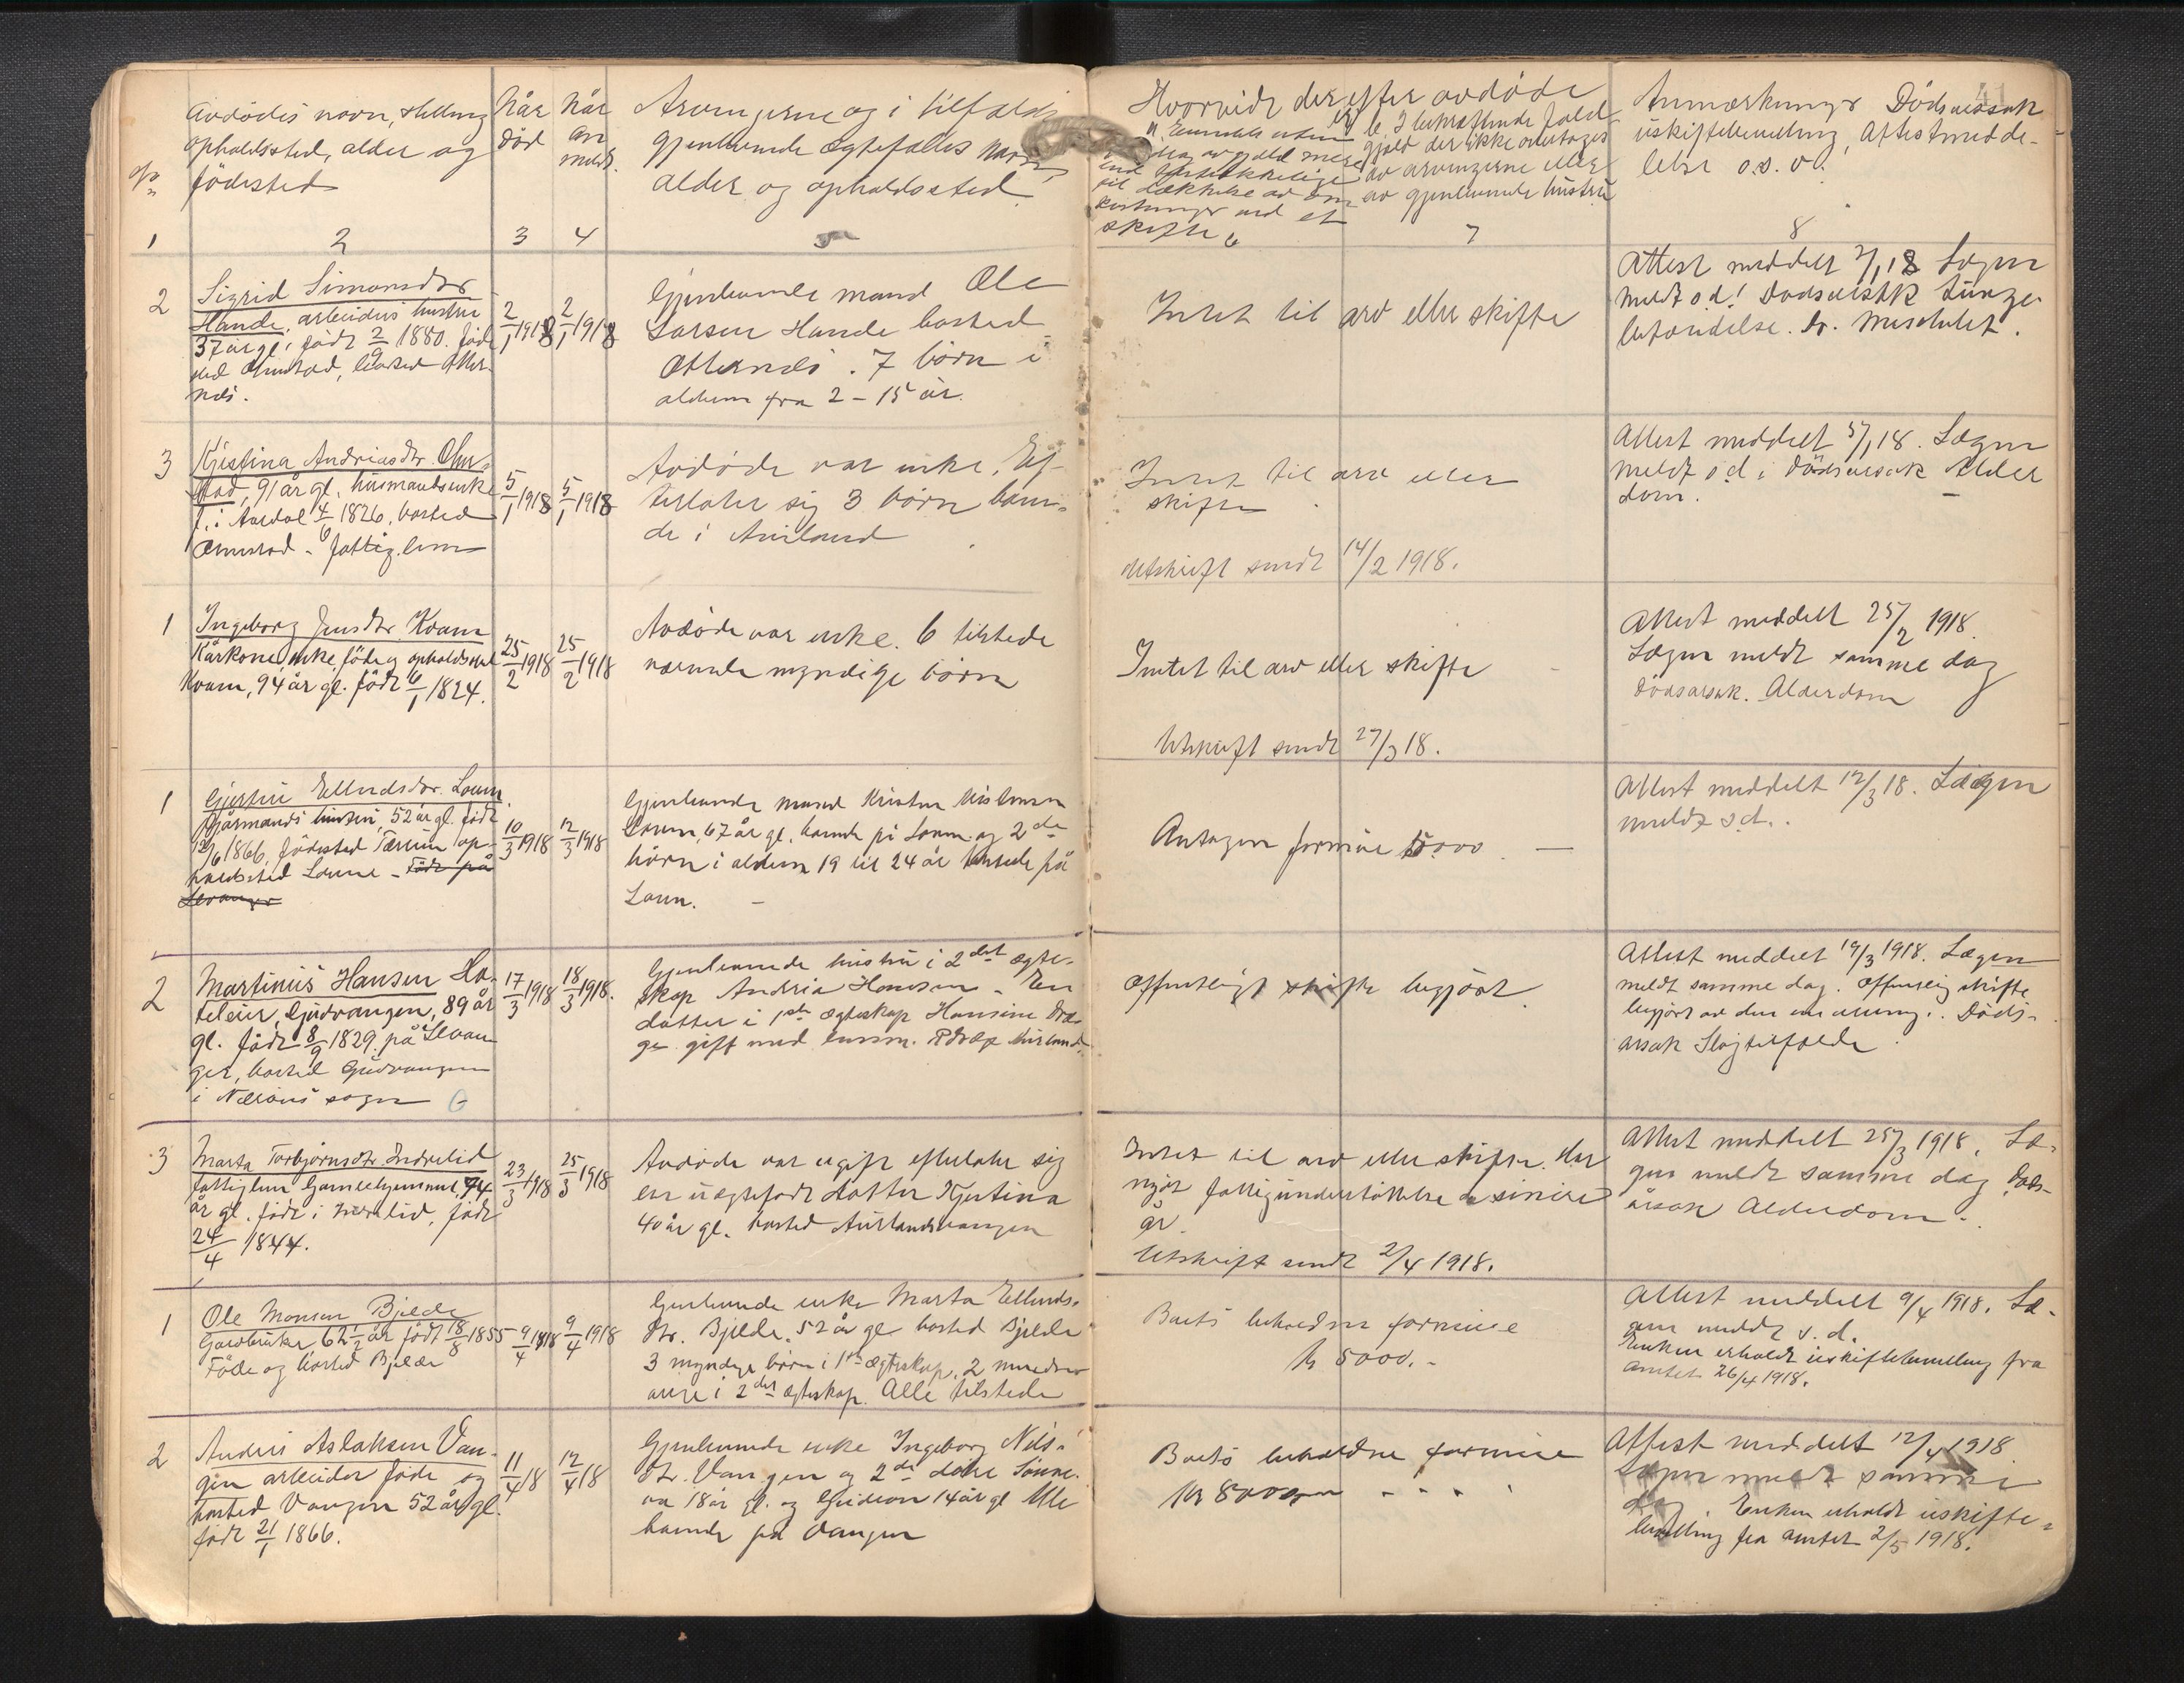 Avdödes navn, stilling
opholdssted, alder og
födested
Når
död
Når
an
meldt.
Arvingerne og i tilfælde
gjenlevende ægtefælles navn,
alder og opholdssted.
Hvorvidt der efter avdöde
er
til dækkelse av om
kostninger ved et
skifte
b. I bekræftende fald
gjæld der ikke overtages
av arvingerne eller
av gjenlevende hustru
Anmærkninger Dödsaarsak
uskiftebevilling, Attestmedde-
lelse o.s.v.
41
1
2
3
4
5
6
7
8
2
Sigrid Simonsdtr
Hande, arbeiders hustru
37 år gl. født 2/9 1880. föde
sted Onstad, bosted Otter-
nes.
2/1 1918
2/1 1918
Gjenlevende mand Ole
Larsen Hande bosted
Otternes. 7 börn i
alderen fra 2 - 15 år.
Intet til arv eller skifte
Attest meddelt 2/1 18 Lægen
meldt s d. Dødsårsak Lunge-
betændelse. Dr. Meschulst.
3
Kjestina Andriasdtr. On-
stad, 91 år gl. husmandsenke
f. i Aardal 4/6 1826, bosted
Onnstad - fattiglem
5/1 1918
5/1 1918
Avdøde var enke. Ef-
terlater sig 3 börn boen-
de i Aurland
Intet til arv eller
skifte
Utskrift sendt 14/2 1918.
Attest meddelt 5/1 18. Lægen
meldt s d. Dödsaarsak Alder
dom.
1
Ingeborg Jensdtr. Kvam
Kårkone enke, föde og opholdssted
Kvam, 94 år gl. født 6/1 1824.
25/2 1918
25/2 1918
Avdøde var enke. 6 tilstede
værende myndige börn
Intet til arv eller skifte -
Utskrift sendt 27/3 18.
Attest meddelt 25/2 1918
Lægen meldt samme dag
Dödsarsak. Alderdom
1
Gjertin Ellendsdtr. Loven
Kjårmands hustru, 52 år gl. født
12/6 1866, födested Tærum op-
holdssted Lovne - Föde på
Levanger
10/3 1918
12/3 1918
Gjenlevende mand Kristen Kristensen
Lovens, 67 år gl. boende på Loven og 2de
börn i alderen 19 til 24 år boende på
Loven. -
Antagen formue 5000 -
Attest meddelt 12/3 18. Lægen
meldt s.d.
2
Martinus Hansen Ho-
teleier, Gudvangen, 89 år
gl. født 8/9 1829. på Levan
ger, bosted Gudvangen
i Nærøens sogn
17/3 1918
18/3 1918.
Gjenlevende hustru i 2det ægte-
skap Andria Hansen - En
datter i 1ste ægteskap Hansine Dræ-
ge gift med lensm. R Dræge Aurland.
Offentligt skifte begjört.
Attest meddelt 19/3 1918. Lægen
meldt samme dag. Offentlig skifte
begjört av den ene arving. Döds-
arsak Slagtilfælde
3
Marta Torbjörnsdtr. Indrelid
fattiglem Gamlehjemmet, 74
år gl. født i Indrelid, født
24/4 1844.
23/3 1918
25/3 1918
Avdöde var ugift efterlater sig
en uægtefödt datter Kjestina
40 år gl. bosted Aurlandsvangen
Intet til arv eller skifte. Har
nydt fattigunderstöttelse de sinere
år.
Utskrift sendt 2/4 1918.
Attest meddelt 25/3 1918. Læ-
gen meldt samme dag. Döds-
årsak Alderdom.
1
Ole Monsen Bjelde
Gardbruker, 62 1/2 år född 18/8 1855
Föde og bosted Bjelde
9/4 1918
9/4 1918
Gjenlevende enke Marta Ellends-
dtr. Bjelde, 52 år gl. bosted Bjelde
3 myndige börn i 1ste ægteskap, 2 mindreår
inge i 2det ægteskap. Alle tilstede
Boets beholdne formue
kr 5000. -
Attest meddelt 9/4 1918. Læ-
gen meldt s. d.
Enken erholdt uskiftebevilling fra
amtet 26/4 1918.
2
Anders Aslaksen Van-
gen arbeider föde og
bosted Vangen 52 år gl.
født 21/1 1866.
11/4 18
12/4 18
Gjenlevende enke Ingeborg Nils-
dtr. Vangen og 2de dötre Sunne-
va 18 år gl. og Gudrun 14 år gl. Alle
boende på Vangen
Boets beholdne formue
kr 8000
Attest meddelt 12/4 1918
Lægen meldt samme
dag. Enken erholdt uskifte-
bevilling fra amtet 2/5 1918.